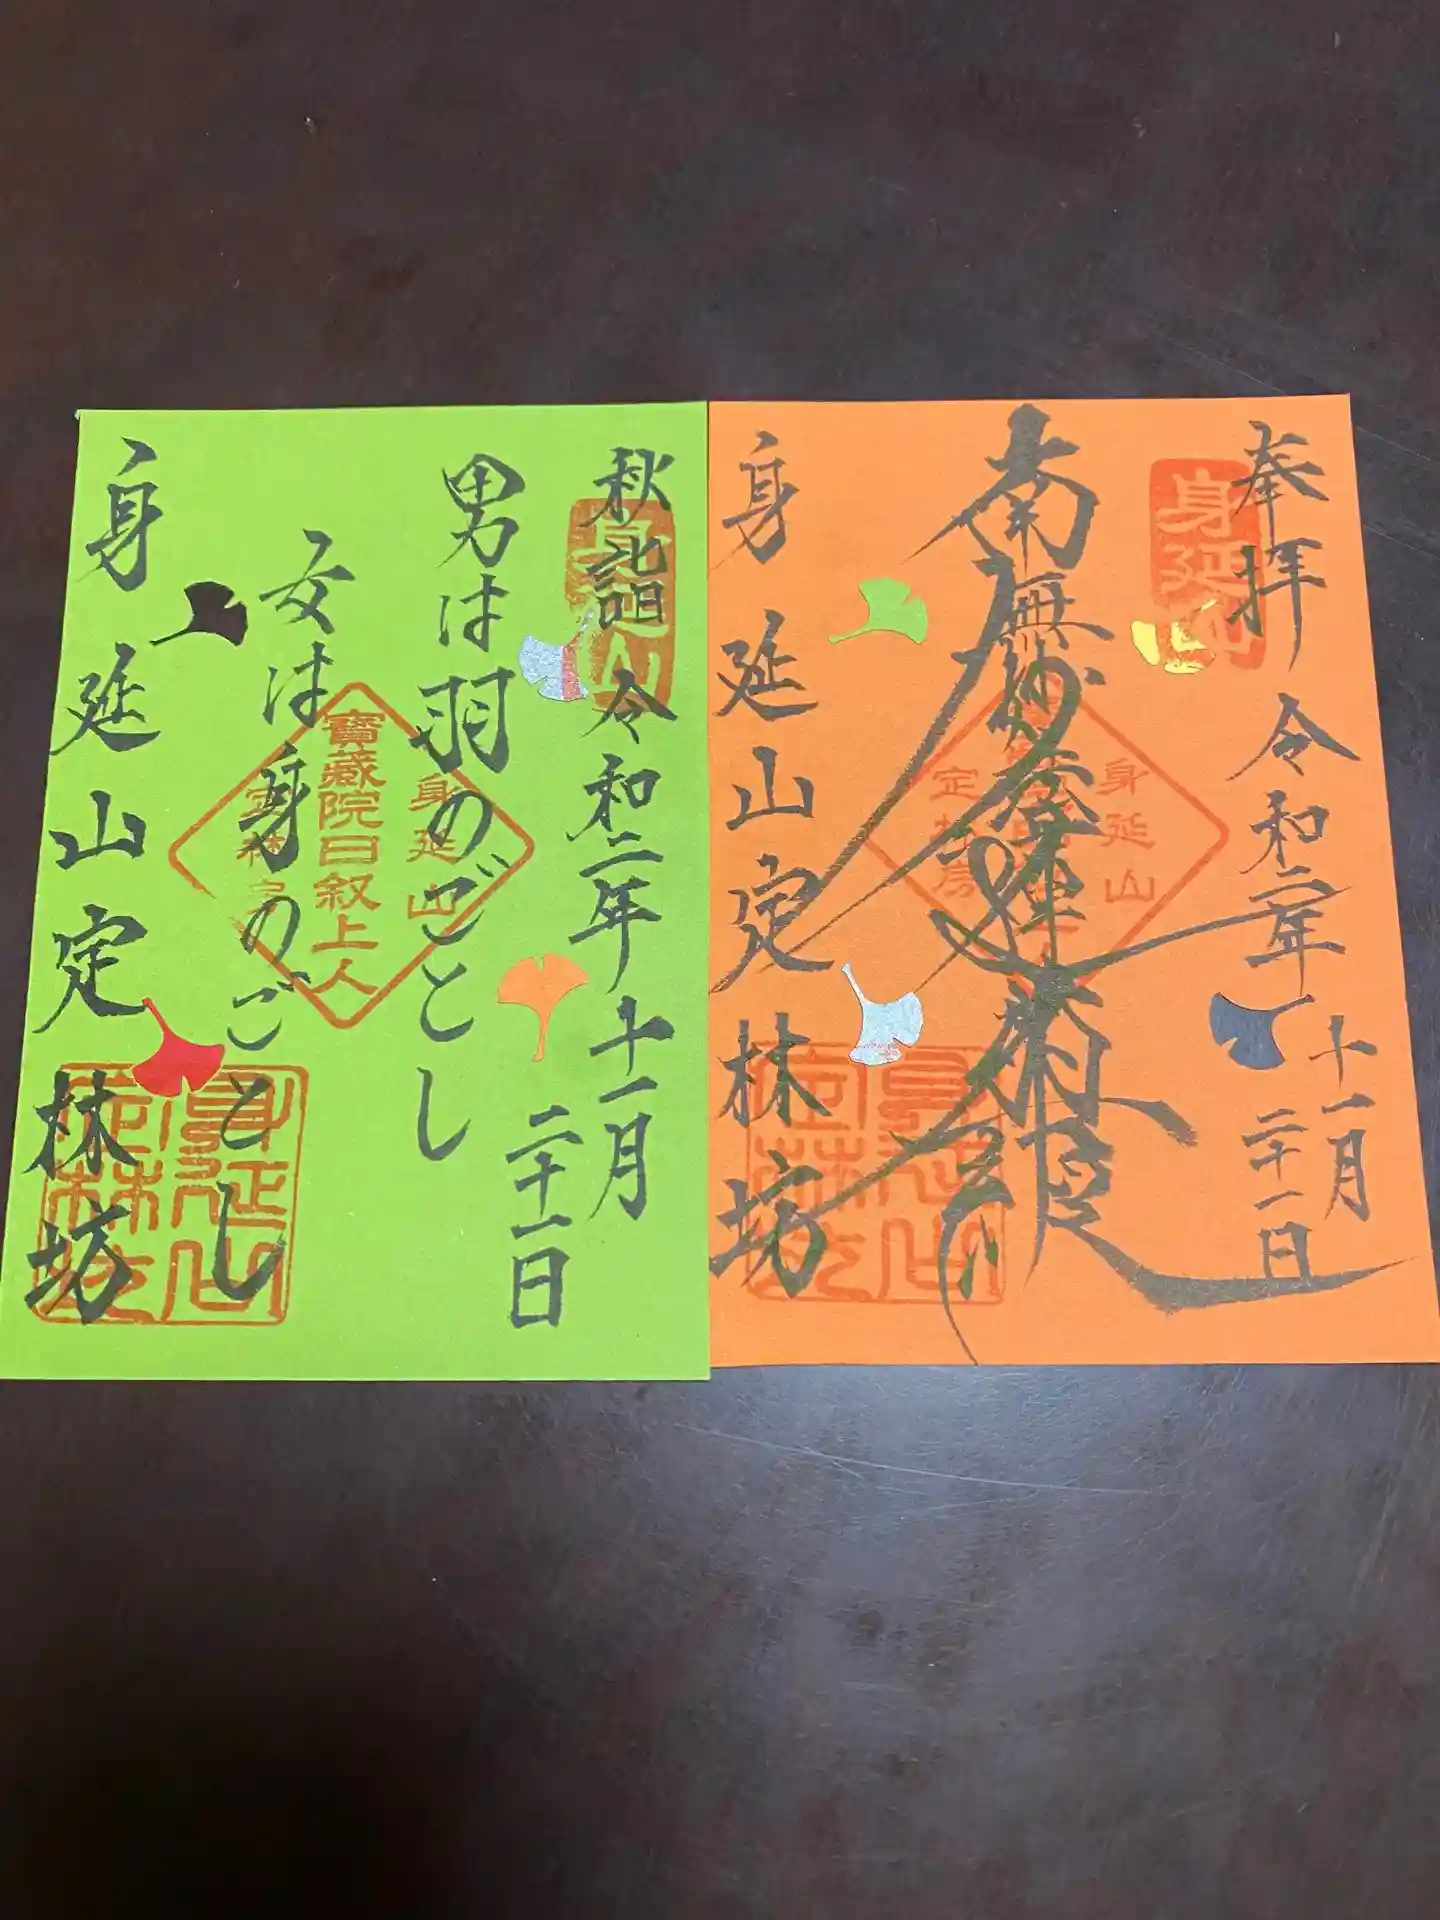 奉拝 令和二年十一月
二十一日
南無妙法蓮華経
身延山定林坊
身延山
身延山
定林房
身延山
定林坊
秋詣 令和二年十一月
二十一日
男は羽のごとし
女は身のごとし
身延山定林坊
身延山
身延山
寶蔵院日叙上人
身延山
定林坊